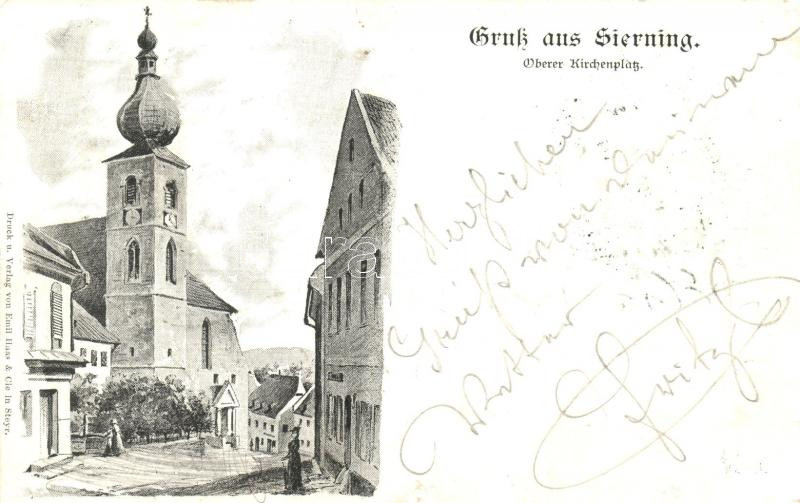 Gruß aus Sierning.
Oberer Kirchenplatz.
Herzlichen
Gruß von
Vetter
Fritz
Druck u. Verlag von Emil Haas & Cie in Steyr.